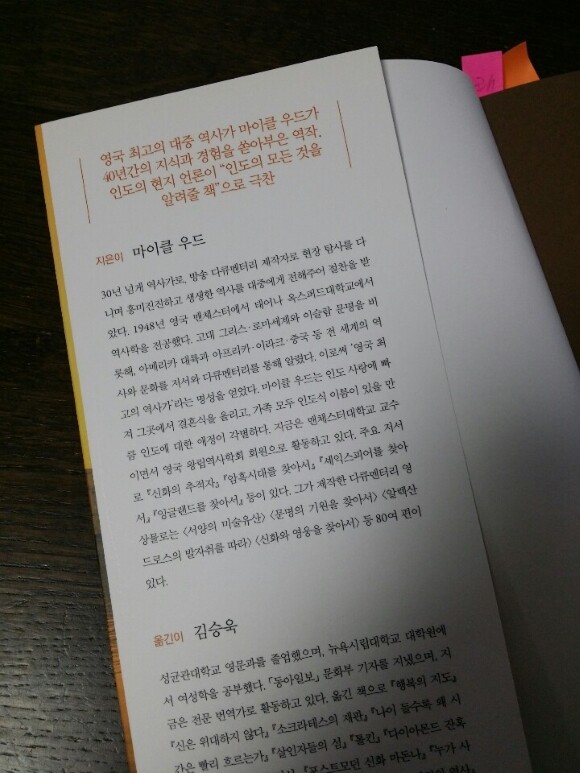 영국 최고의 대중 역사가 마이클 우드가
40년간의 지식과 경험을 쏟아부은 역작.
인도의 현지 언론이 “인도의 모든 것을
알려줄 책”으로 극찬
지은이 마이클 우드
30년 넘게 역사가로, 방송 다큐멘터리 제작자로 현장 탐사를 다
니며 흥미진진하고 생생한 역사를 대중에게 전해주어 절찬을 받
았다. 1948년 영국 맨체스터에서 태어나 옥스퍼드대학교에서
역사학을 전공했다. 고대 그리스·로마세계와 이슬람 문명을 비
롯해, 아메리카 대륙과 아프리카·이라크·중국 등 전 세계의 역
사와 문화를 저서와 다큐멘터리를 통해 알렸다. 이로써 ‘영국 최
고의 역사가’라는 명성을 얻었다. 마이클 우드는 인도 사랑에 빠
져 그곳에서 결혼식을 올리고, 가족 모두 인도식 이름이 있을 만
큼 인도에 대한 애정이 각별하다. 지금은 맨체스터대학교 교수
이면서 영국 왕립역사학회 회원으로 활동하고 있다. 주요 저서
로 『신화의 추적자』 『암흑시대를 찾아서』 『셰익스피어를 찾아
서』 『잉글랜드를 찾아서』 등이 있다. 그가 제작한 다큐멘터리 영
상물로는 〈서양의 미술유산〉 〈문명의 기원을 찾아서〉 〈알렉산
드로스의 발자취를 따라〉 〈신화와 영웅을 찾아서〉 등 80여 편이
있다.
옮긴이 김승욱
성균관대학교 영문과를 졸업했으며, 뉴욕시립대학교 대학원에
서 여성학을 공부했다. 『동아일보』 문화부 기자를 지냈으며, 지
금은 전문 번역가로 활동하고 있다. 옮긴 책으로 『행복의 지도』
『신은 위대하지 않다』 『소크라테스의 재판』 『나이 들수록 왜 시
간은 빨리 흐르는가』 『살인자들의 섬』 『톨킨』 『다이아몬드 잔혹
『포스트모던 신화 마돈나』 『누가 사